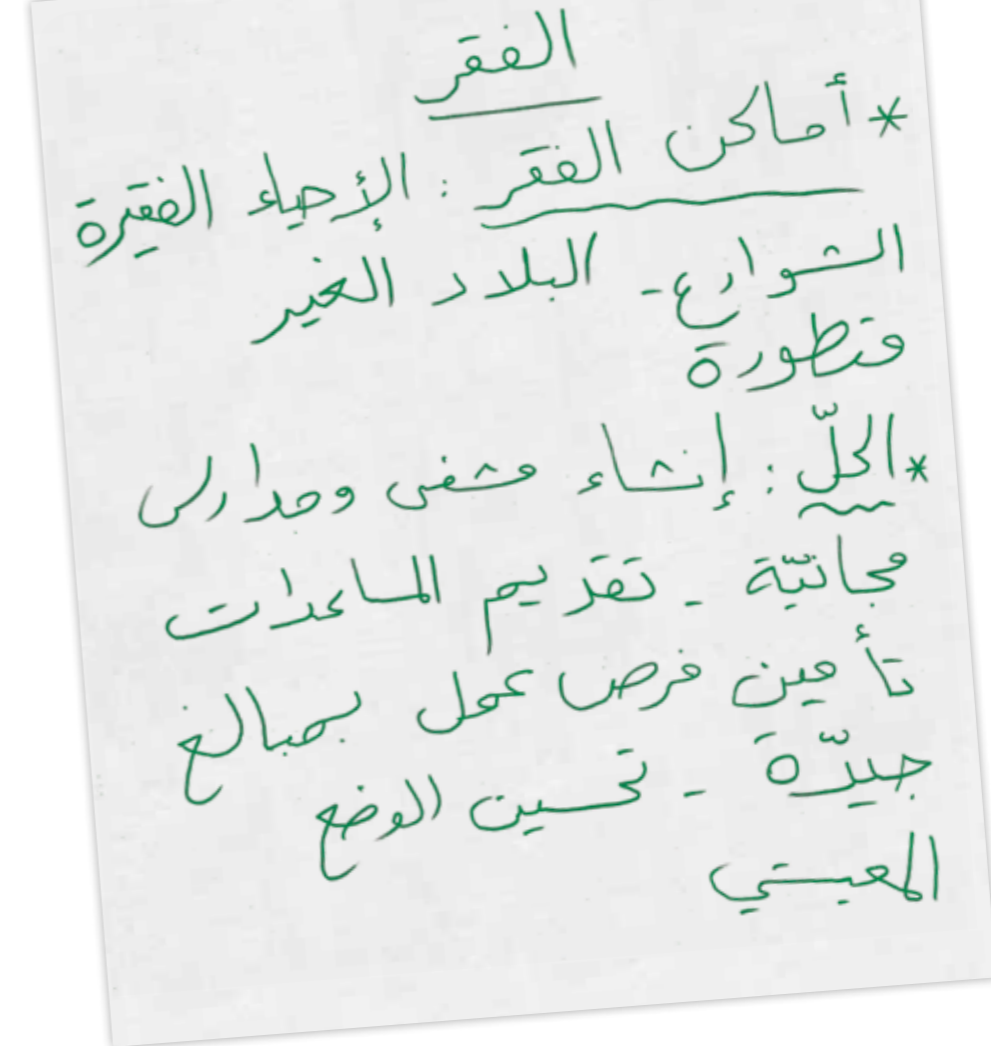 الفقر
* أماكن الفقر : الأحياء الفقيرة
الشوارع - البلاد الغير
متطورة
* الحلّ : إنشاء مشفى ومدارس
مجانيّة - تقديم المساعدات
تأمين فرص عمل بمبالغ
جيّدة - تحسين الوضع
المعيشي